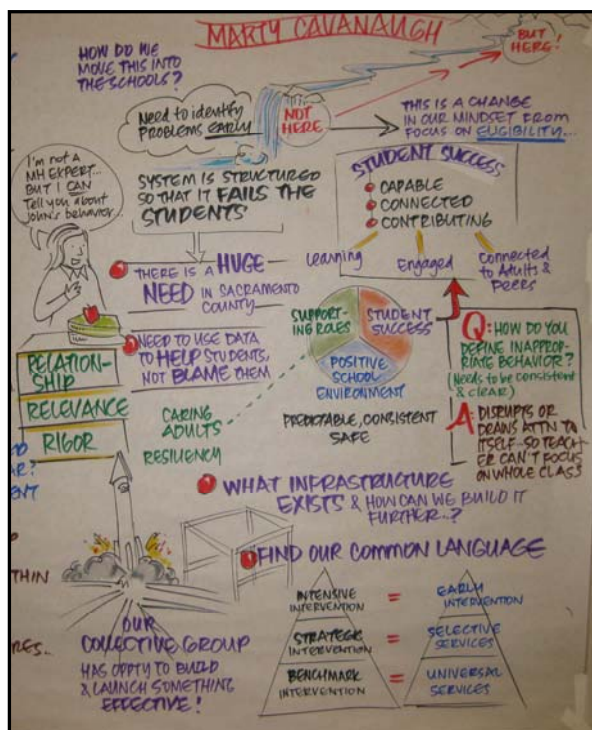 MARTY CAVANAUGH
HOW DO WE
MOVE THIS INTO
THE SCHOOLS?
BUT
HERE!
Need to identify
PROBLEMS EARLY
NOT
HERE
THIS IS A CHANGE
IN OUR MINDSET FROM
FOCUS ON ELIGIBILITY...
I'm not a
MH EXPERT...
BUT I CAN
Tell you about
John's behavior...
SYSTEM IS STRUCTURED
SO THAT IT FAILS THE
STUDENTS
STUDENT SUCCESS
CAPABLE
CONNECTED
CONTRIBUTING
Learning
Engaged
Connected
to Adults &
Peers
THERE IS A HUGE
NEED IN SACRAMENTO
COUNTY
NEED TO USE DATA
TO HELP STUDENTS,
NOT BLAME THEM
SUPPORT-
ING ROLES
STUDENT
SUCCESS
POSITIVE
SCHOOL
ENVIRONMENT
PREDICTABLE, CONSISTENT
SAFE
CARING
ADULTS
RESILIENCY
Q: HOW DO YOU
DEFINE INAPPROP-
RIATE BEHAVIOR?
(Needs to be consistent
& clear)
A: DISRUPTS OR
DRAINS ATTN TO
ITSELF-SO TEACH-
ER CAN'T FOCUS
ON WHOLE CLASS
RELATION-
SHIP
RELEVANCE
RIGOR
WHAT INFRASTRUCTURE
EXISTS & HOW CAN WE BUILD IT
FURTHER..?
FIND OUR COMMON LANGUAGE
INTENSIVE
INTERVENTION
=
EARLY
INTERVENTION
STRATEGIC
INTERVENTION
=
SELECTIVE
SERVICES
BENCHMARK
INTERVENTION
=
UNIVERSAL
SERVICES
OUR
COLLECTIVE GROUP
HAS OPPTY TO BUILD
& LAUNCH SOMETHING
EFFECTIVE!